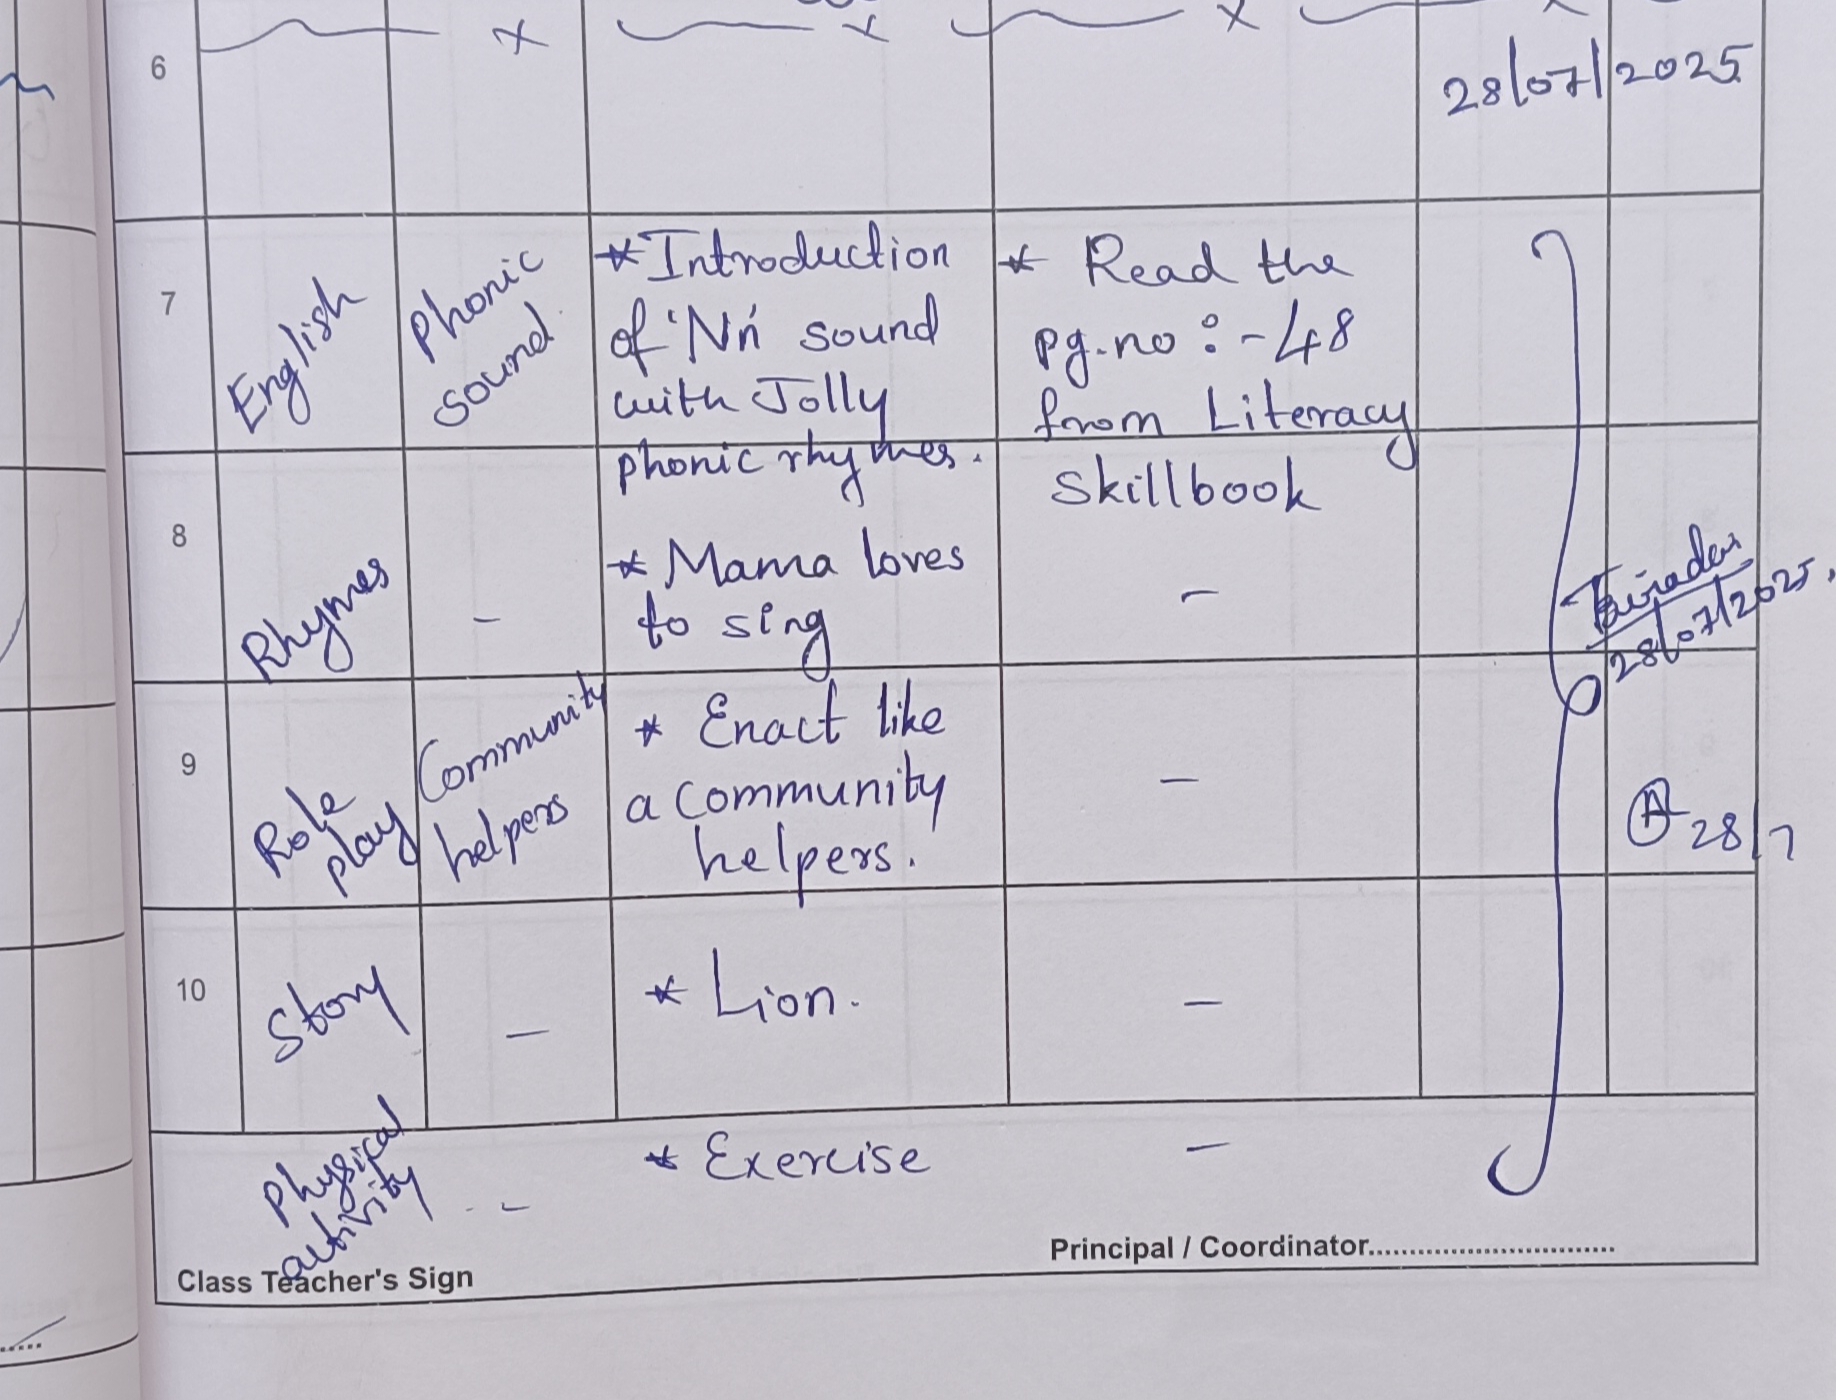 6
28/07/2025
7
English
Phonic
sound
* Introduction
of 'Nn' sound
with Jolly
phonic rhymes.
* Read the
pg.no :- 48
from Literacy
skillbook
8
Rhymes
-
* Mama loves
to sing
-
28/07/2025.
9
Role
play
Community
helpers
* Enact like
a community
helpers.
-
28/7
10
Story
-
* Lion.
-
Physical
activity
-
* Exercise
-
Principal / Coordinator..............................
Class Teacher's Sign